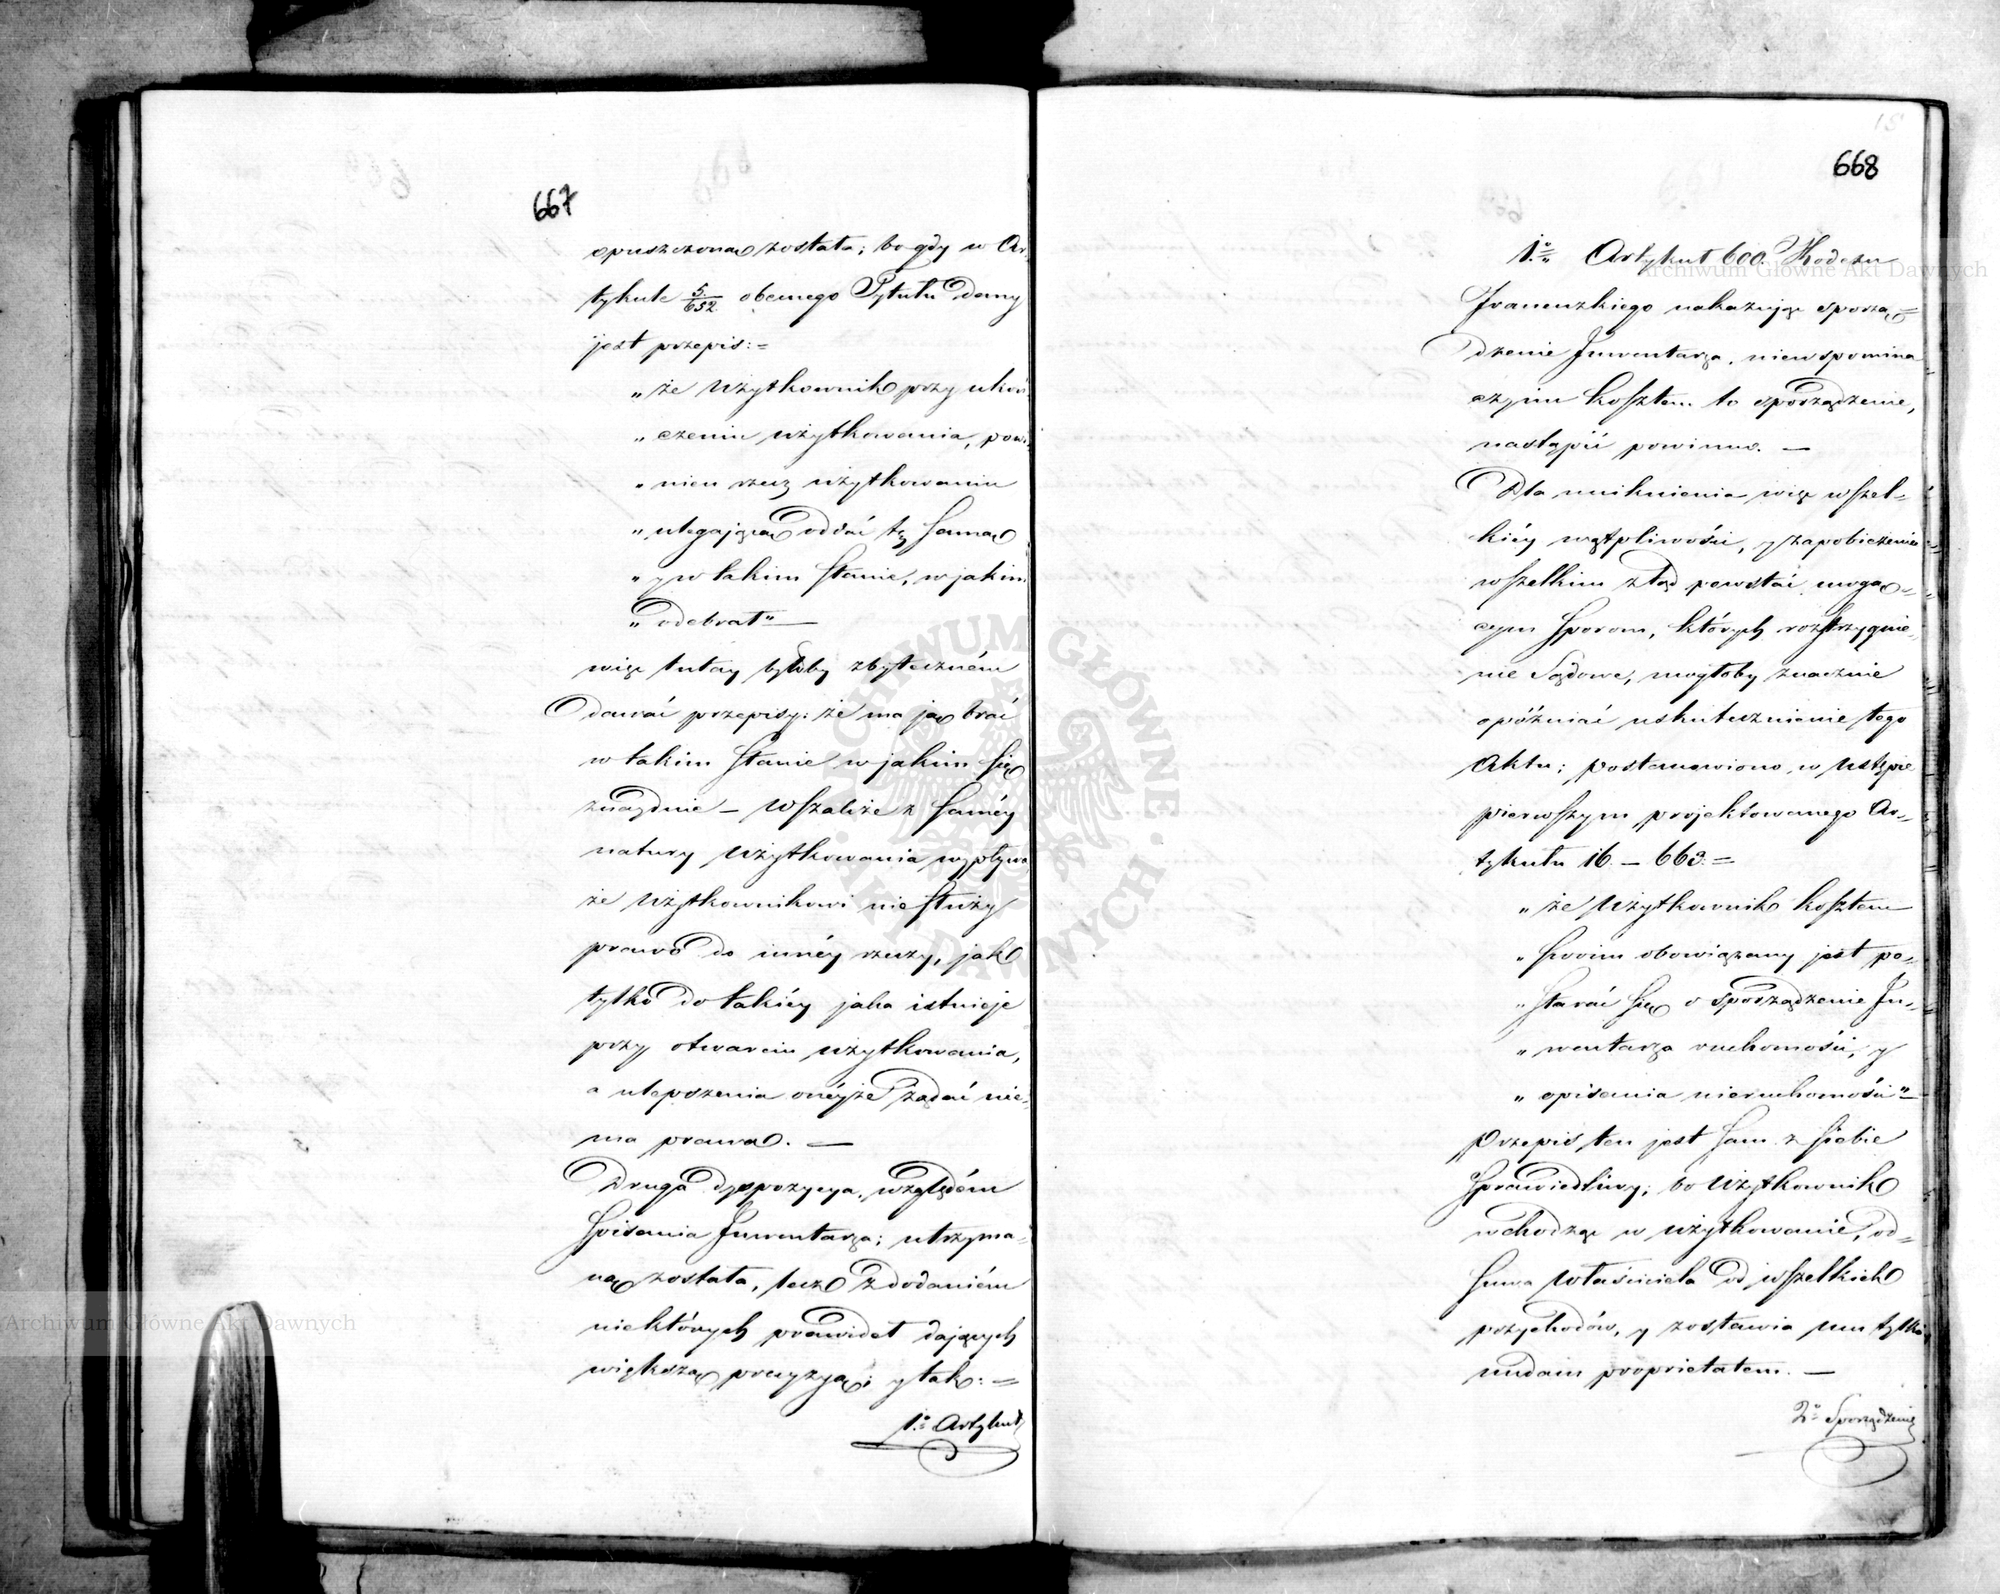 667
opuszczoną została; bo gdy w Ar-
tykule 5/652 obecnego Tytułu dany
jest przepis:=
„ że Użytkownik przy ukoń
„ czeniu użytkowania, powi
„ nien rzecz użytkowaniu
„ ulegającą oddać tę samą
„ y w takim stanie, w jakim
„ odebrał" —
więc tutay byłoby zbyteczném
dawać przepisy: że ma ją brać
w takim stanie w jakim się
znayduie — wszakże z saméy
natury Użytkowania wypływa
że Użytkownikowi nie służy
prawo do innéy rzeczy, jak
tylko do takiéy jaka istnieje
przy otwarciu użytkowania,
a ulepszenia onéyże żądać nie-
ma prawa. —
Druga dyspozycya, względem
spisania Inwentarza; utrzyma-
ną została, lecz z dodaniem
niektórych prawideł dających
większą precyzyą; y tak: =
1.° Artykuł
15
668
1.° Artykuł 600. Kodexu
Francuzkiego nakazując sporzą=
dzenie Inwentarza, niewspomina
czyim kosztem to sporządzenie,
nastąpić powinno. —
Dla uniknienia więc wszel=
kiéy wątpliwości, y zapobieżenia
wszelkim ztąd powstać mogą=
cym sporom, których rozstrzygnie
nie Sądowe, mogłoby znacznie
opóźniać uskutecznienie tego
Aktu; postanowiono w ustępie
pierwszym projektowanego Ar=
tykułu 16. — 663. =
„ że Użytkownik kosztem
„ swoim obowiązany jest po=
„ starać się o sporządzenie In=
„ wentarza ruchomości, y
„ opisania nieruchomości" —
Przepis ten jest sam z siebie
sprawiedliwy; bo Użytkownik
wchodząc w użytkowanie, od=
suwa właściciela od wszelkich
przychodów, y zostawia mu tylko
nudam proprietatem. —
2.° Sporządzenie
Archiwum Główne Akt Dawnych
Archiwum Główne Akt Dawnych
ARCHIWUM GŁÓWNE · AKT DAWNYCH ·